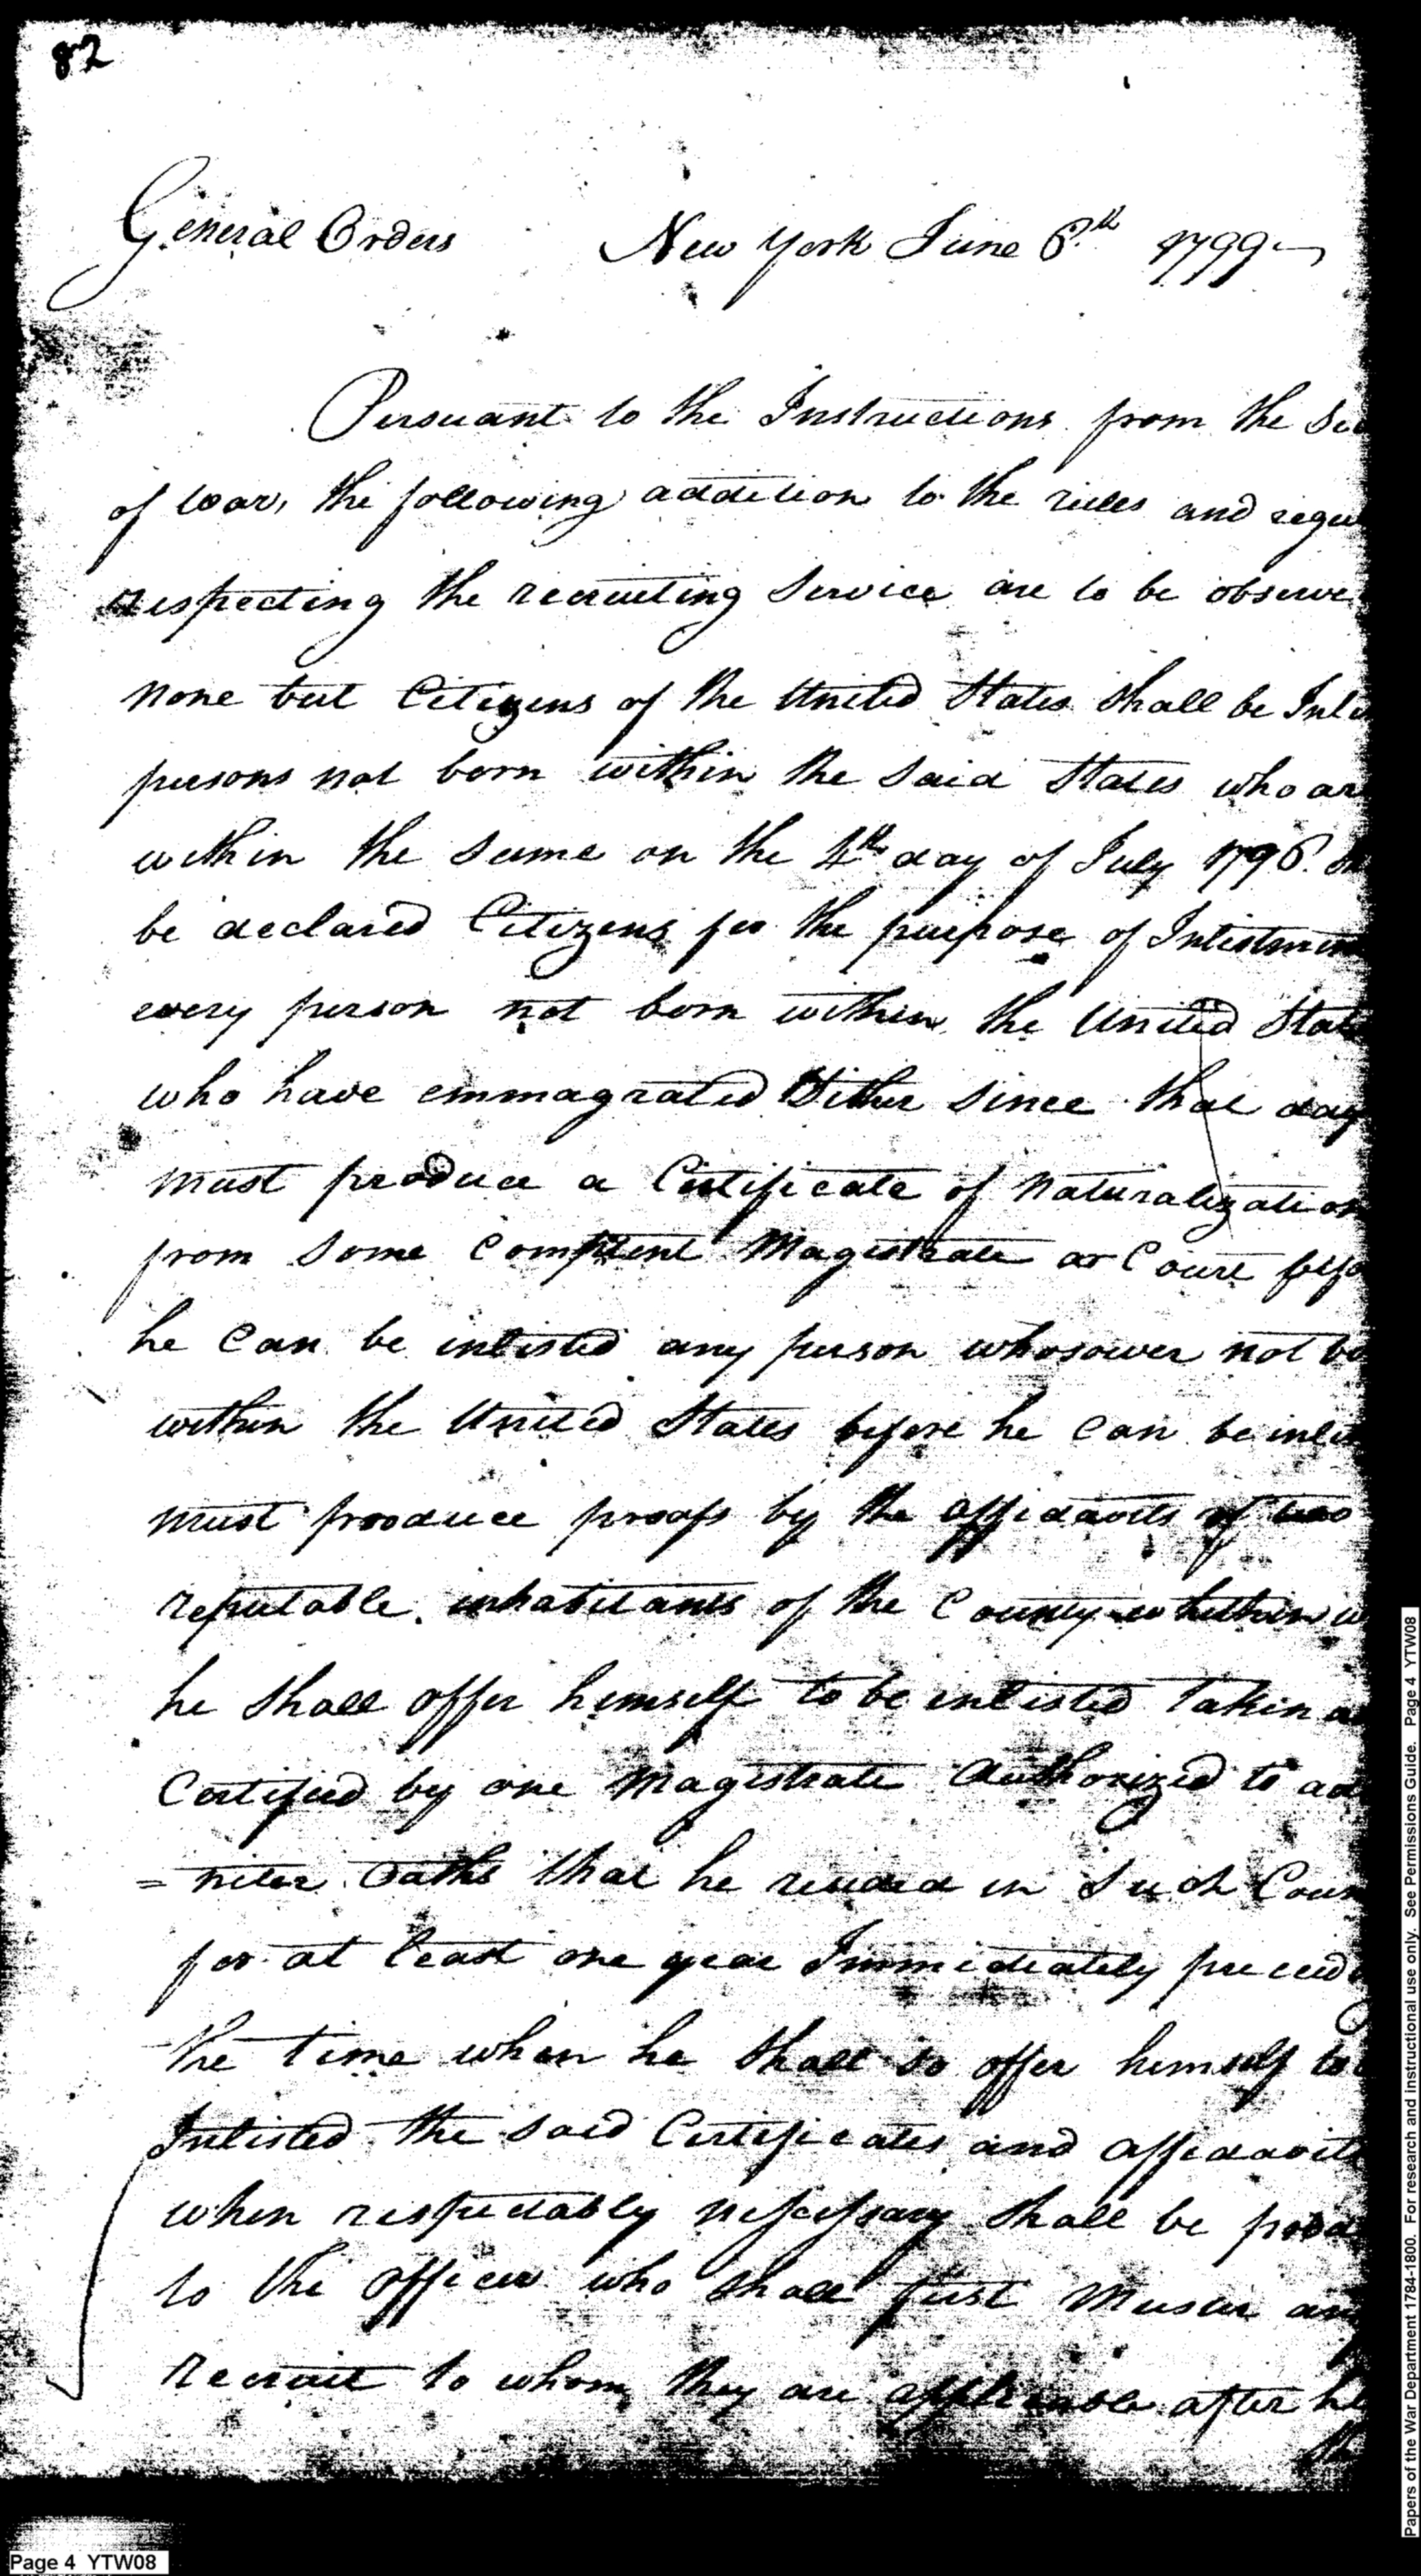 82
General Orders New York June 6th 1799
Pursuant to the Instructions from the Sec
of War, the following addition to the rules and regu
respecting the recruiting Service are to be observe
none but Citizens of the United States shall be Inli
persons not born within the said States who ar
within the same on the 4th day of July 1796. sh
be declared Citizens for the purpose of Inlistmen
every person not born within the United State
who have emmagrated hither since that day
must produce a Certificate of Naturalization
from some Competent Magistrate or Court befo
he can be inlisted any person whosower not bo
within the United States before he can be inlis
must prooduce proofs by the affidavits of two
reputable inhabitants of the County whithin w
he shall offer himself to be inlisted taken a
Certified by one Magistrate Authorized to ad
= nister Oaths that he resided in such Coun
for at least one year Immediately preceed
the time when he shall so offer himself to
Inlisted the said Certificates and affidavits
when respectably nescessary shall be prod
to the officer who shall first Muster any
Recruit to whom they are applicable after he
Page 4 YTW08
Papers of the War Department 1784-1800. For research and instructional use only. See Permissions Guide. Page 4 YTW08